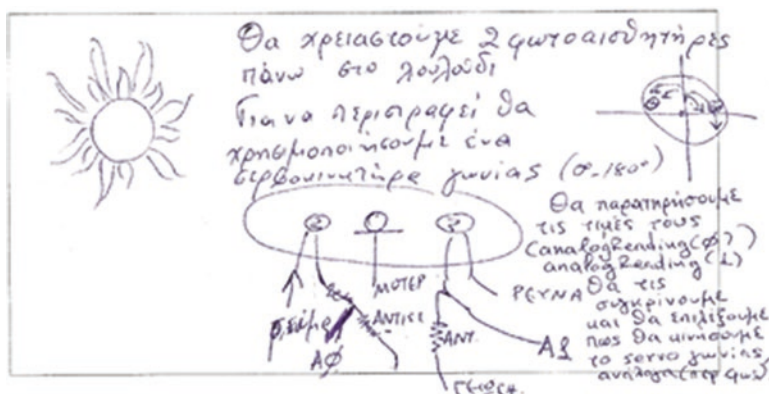 Θα χρειαστούμε 2 φωτοαισθητήρες
πάνω στο λουλούδι
Για να περιστραφεί θα
χρησιμοποιήσουμε ένα
σερβοκινητήρα γωνίας (0-180°)
Θα παρατηρήσουμε
τις τιμές τους
(analogReading(φ)
analogReading(1)
θα τις
συγκρίνουμε
και θα επιλέξουμε
πως θα κινήσουμε
το servo γωνίας
ανάλογα
ΜΟΤΕΡ
ΡΕΥΜΑ
ΑΝΤΙΣΤ
ΑΝΤ.
Αφ
Α1